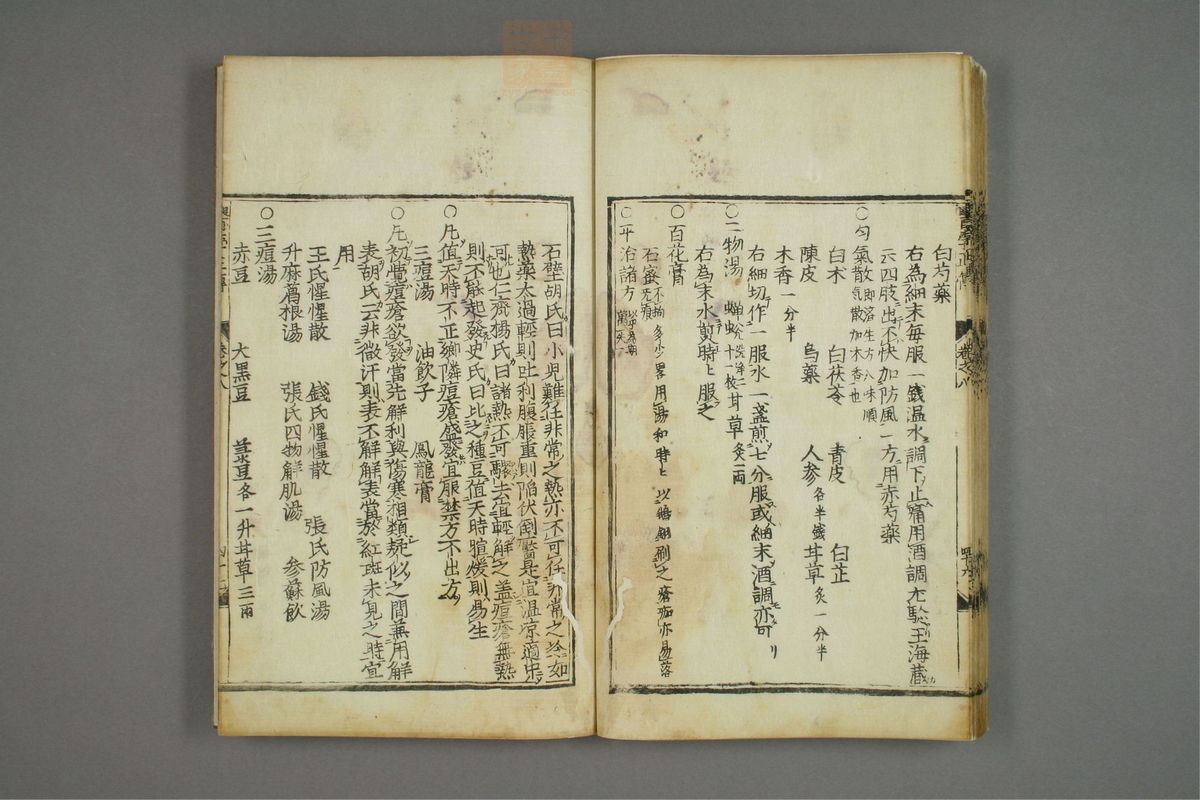 白芍藥
右為細末每服一錢温水調下止痛用酒調尤驗王海藏
云四肢出不快加防風一方用赤芍藥
○勻氣散即済生方八味順氣散加木香也
白朮 白茯苓 青皮 白芷
陳皮 烏藥 人参各半錢 甘草炙一分半
木香一分半
右細切作一服水一盞煎七分服或細末酒調亦可
○二物湯 蟬蛻洗浄二十一枚 甘草炙一両
右為末水煎時時服之
○百花膏
石蜜不拘多少畧用湯和時時以鵝翎刷之瘡痂亦易落
○一平治諸方
卷之八
石壁胡氏曰小児難任非常之熱亦不可任非常之冷如
熱藥太過輕則吐利腹脹重則陥伏倒靨是宜温凉適中
可也仁齋楊氏曰諸熱不可驟去宜輕解之盖痘瘡無熱
則不能起發史氏曰比之種豆值天時暄煖則易生
○凡值天時不正鄉隣痘瘡盛發宜服禁方不出方
三痘湯 油飲子 鳳龍膏
○凡初覺痘瘡欲發當先解利與傷寒相類疑似之間兼用解
表胡氏云非微汗則表不解解表當於紅斑未見之時宜
用
王氏惺惺散 錢氏惺惺散 張氏防風湯
升麻葛根湯 張氏四物解肌湯 参蘇飲
○三痘湯
赤豆 大黒豆 菉豆各一升 甘草三両